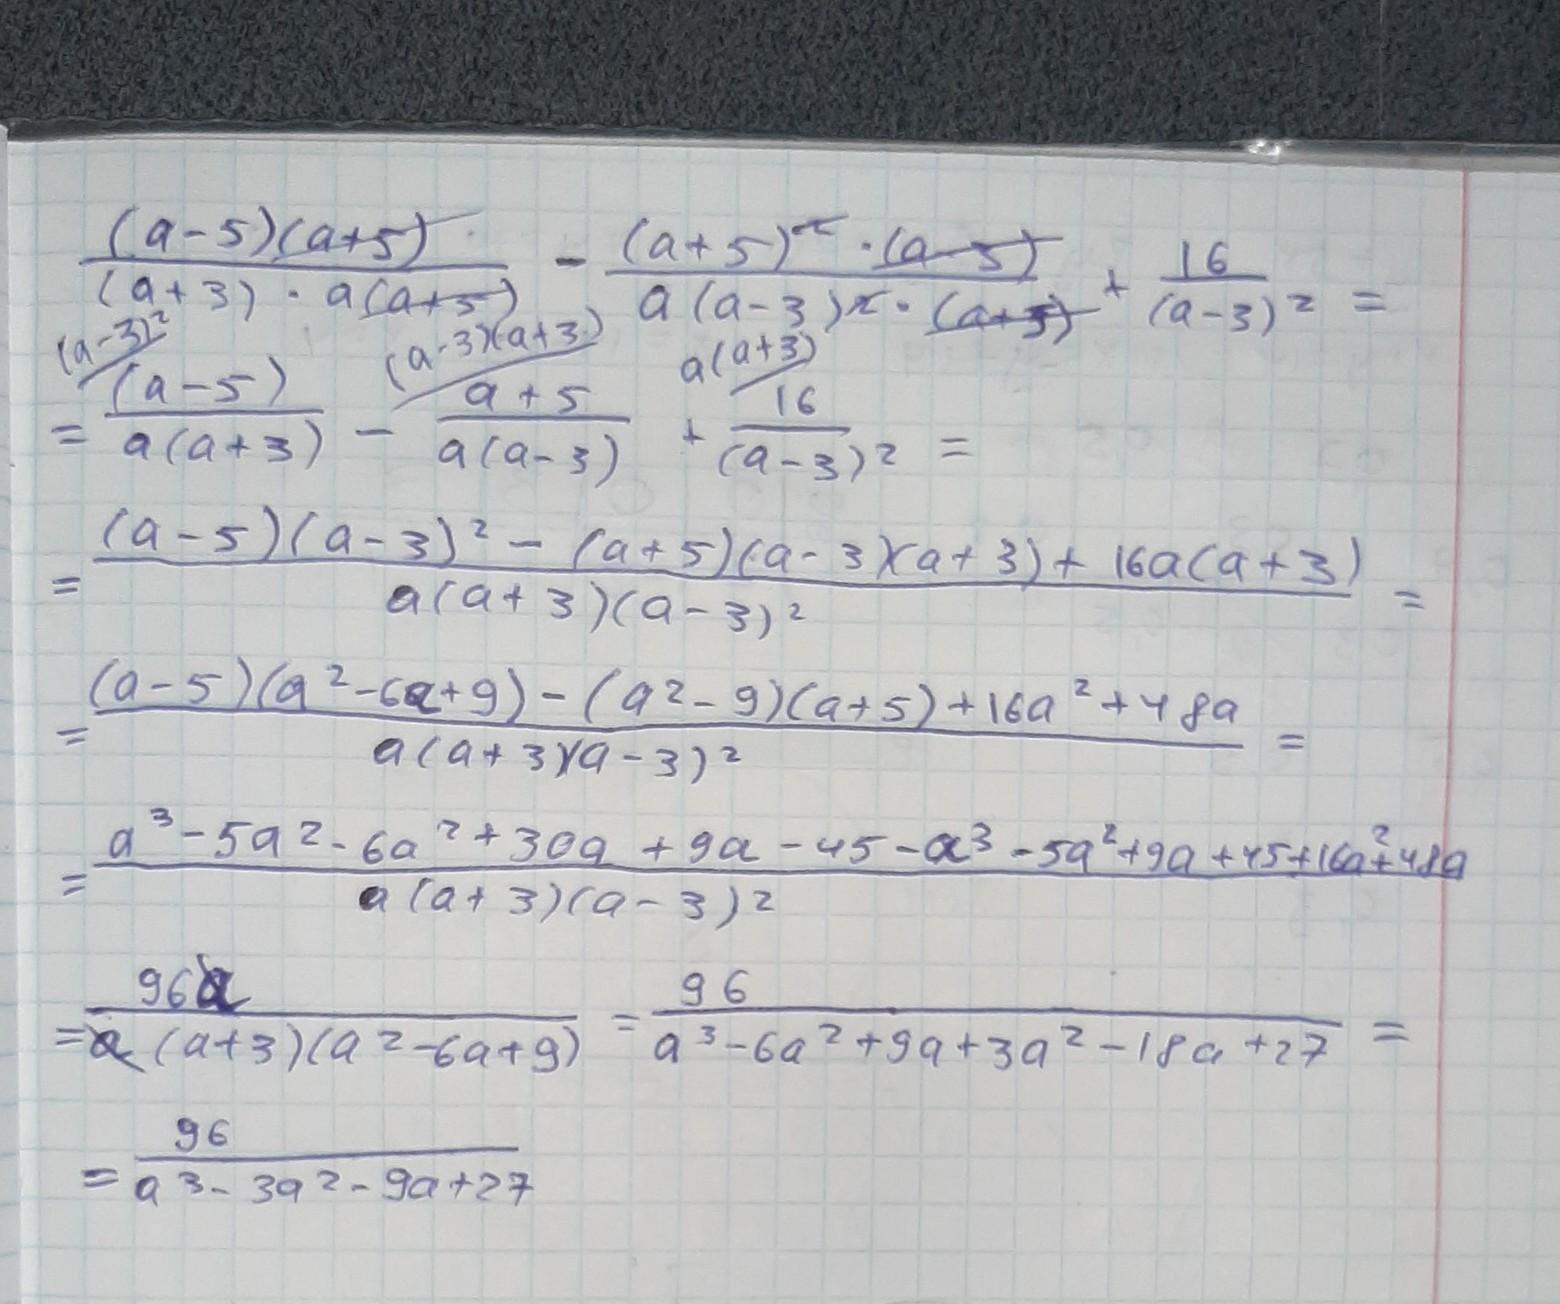 (a-5)(a+5) / (a+3)·a(a+5) - (a+5)²·(a-5) / a(a-3)²·(a+5) + 16 / (a-3)² =
(a-3)² (a-3)(a+3) a(a+3)
= (a-5) / a(a+3) - a+5 / a(a-3) + 16 / (a-3)² =
= (a-5)(a-3)² - (a+5)(a-3)(a+3) + 16a(a+3) / a(a+3)(a-3)² =
= (a-5)(a²-6a+9) - (a²-9)(a+5) + 16a² + 48a / a(a+3)(a-3)² =
= a³-5a²-6a²+30a+9a-45-a³-5a²+9a+45+16a²+48a / a(a+3)(a-3)²
= 96a / a(a+3)(a²-6a+9) = 96 / a³-6a²+9a+3a²-18a+27 =
= 96 / a³-3a²-9a+27